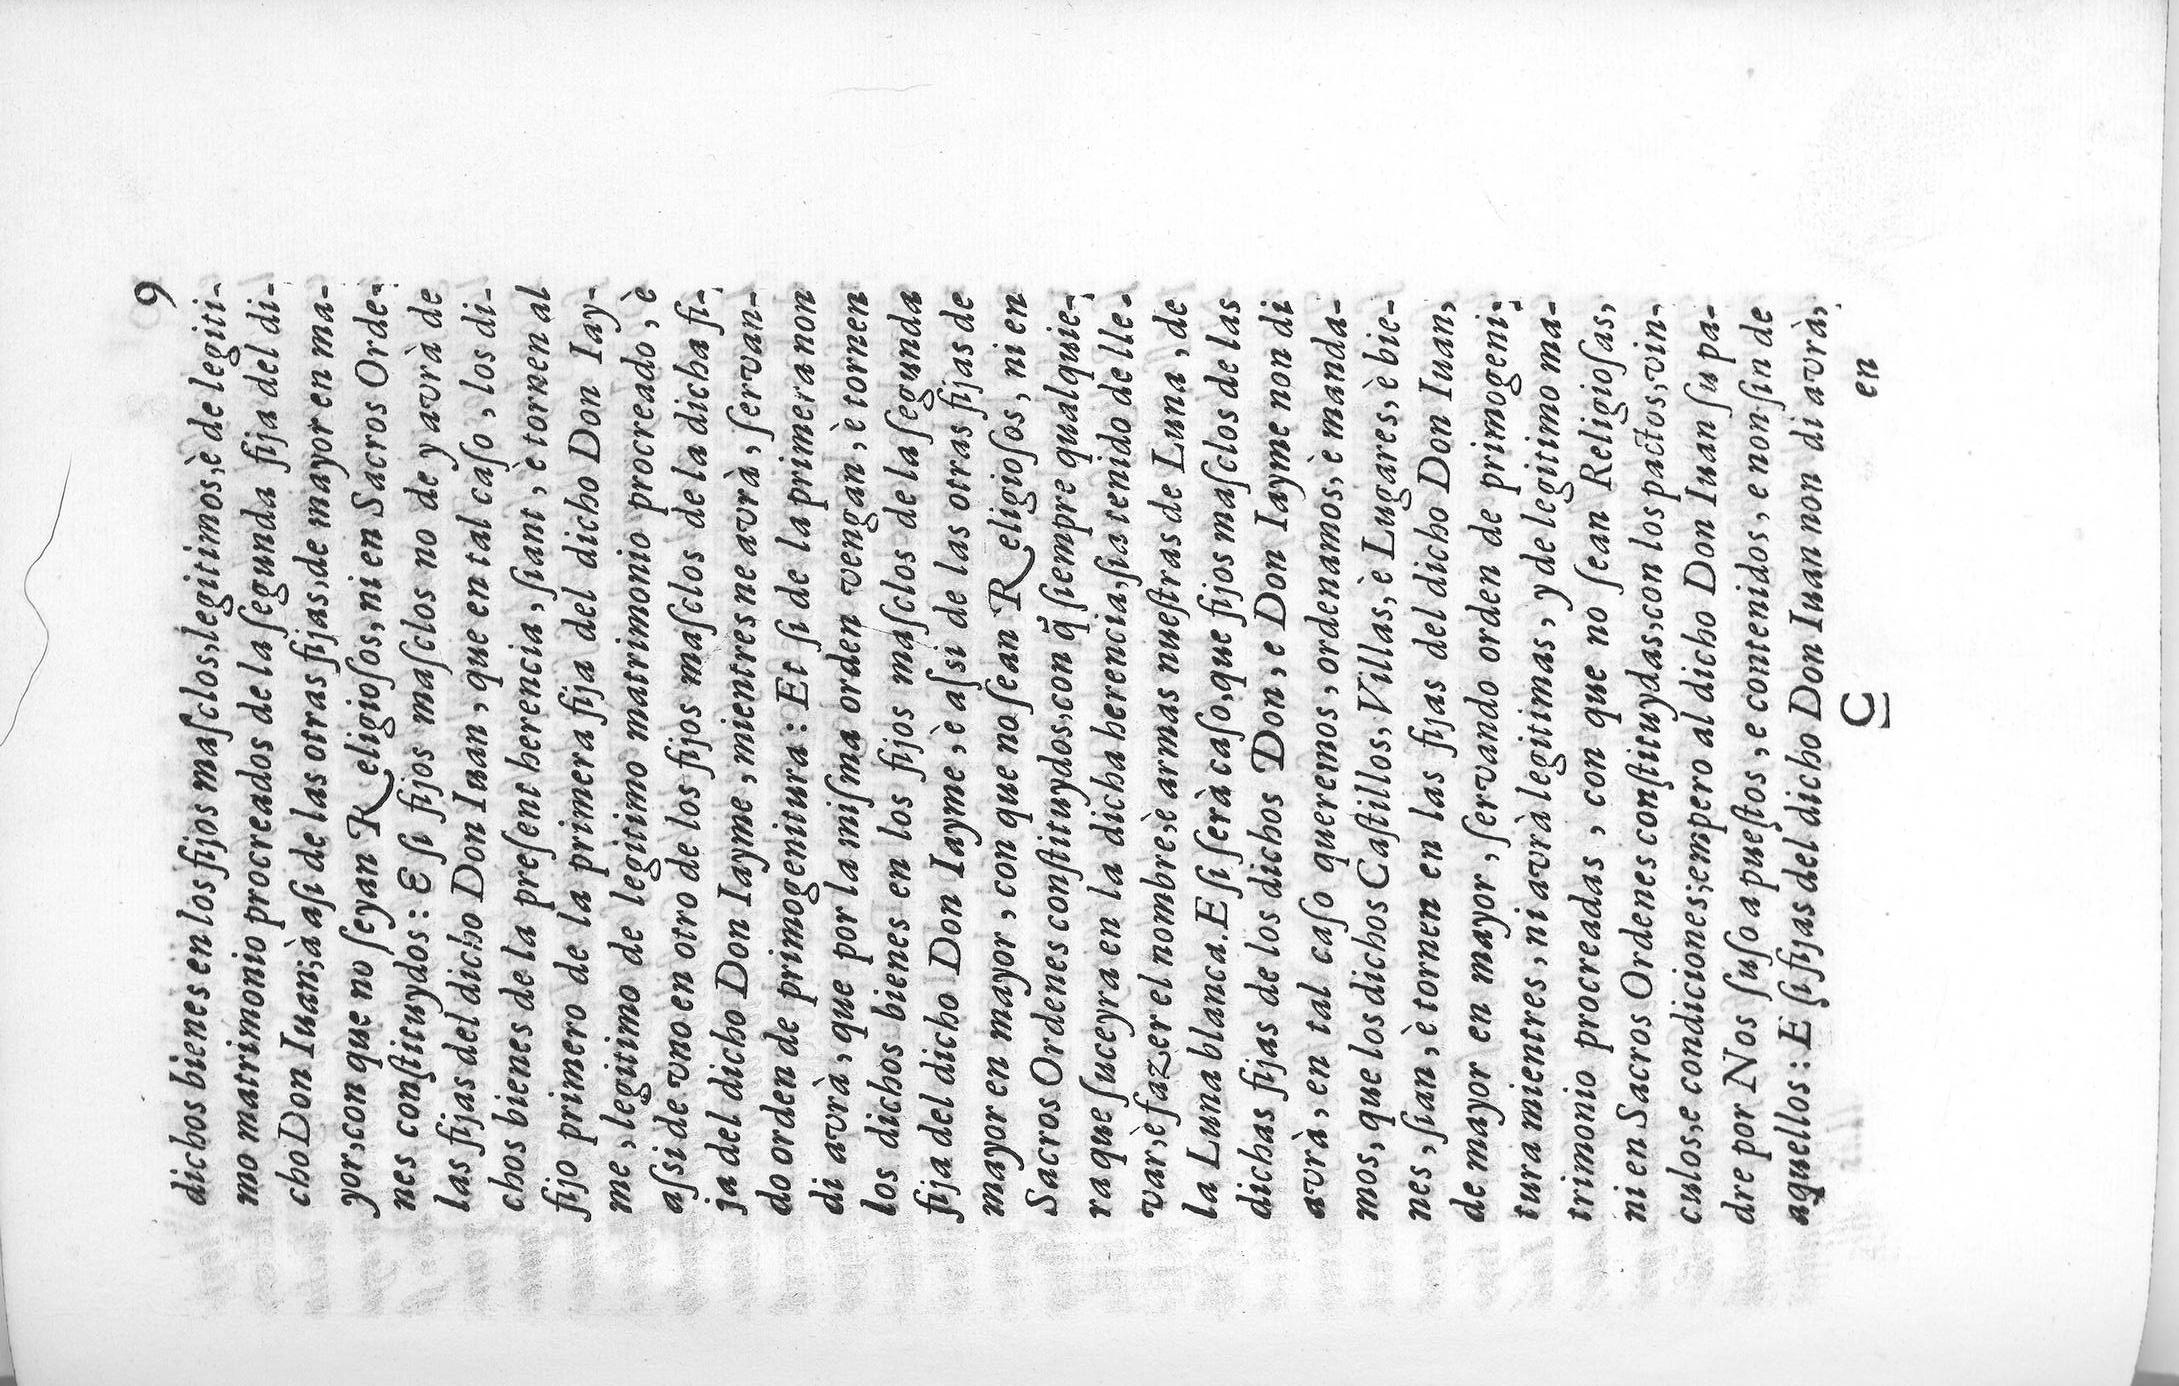 9
dichos bienes en los fijos maſclos, legitimos, è de legiti-
mo matrimonio procreados de la ſegunda fija del di-
cho Don Iuan; à aſi de las otras fijas, de mayor en ma-
yor, con que no ſeyan Religioſos, ni en Sacros Orde-
nes conſtituydos: E ſi fijos maſclos no de y avrà de
las fijas del dicho Don Iuan, que en tal caſo, los di-
chos bienes de la preſent herencia, ſiant, è tornen al
fijo primero de la primera fija del dicho Don Iay-
me, legitimo de legitimo matrimonio procreado, è
aſsi de vno en otro de los fijos maſclos de la dicha fi-
ja del dicho Don Iayme, mientres ne avrà, ſervan-
do orden de primogenitura: Et ſi de la primera non
di avrà, que por la miſma orden vengan, è tornen
los dichos bienes en los fijos maſclos de la ſegunda
fija del dicho Don Iayme, è aſsi de las otras fijas de
mayor en mayor, con que no ſean Religioſos, ni en
Sacros Ordenes conſtituydos, con q̃ ſiempre qualquie-
ra que ſuceyra en la dicha herencia, ſia tenido de lle-
var, è fazer el nombre, è armas nueſtras de Luna, de
la Luna blanca. E ſi ſerà caſo, que fijos maſclos de las
dichas fijas de los dichos Don, e Don Iayme non di
avrà, en tal caſo queremos, ordenamos, è manda-
mos, que los dichos Caſtillos, Villas, è Lugares, è bie-
nes, ſian, è tornen en las fijas del dicho Don Iuan,
de mayor en mayor, ſervando orden de primogeni-
tura mientres, ni avrà legitimas, y de legitimo ma-
trimonio procreadas, con que no ſean Religioſas,
ni en Sacros Ordenes conſtituydas, con los pactos, vin-
culos, e condiciones; empero al dicho Don Iuan ſu pa-
dre por Nos ſuſo apueſtos, e contenidos, e non ſin de
aquellos: E ſi fijas del dicho Don Iuan non di avrà,
C en